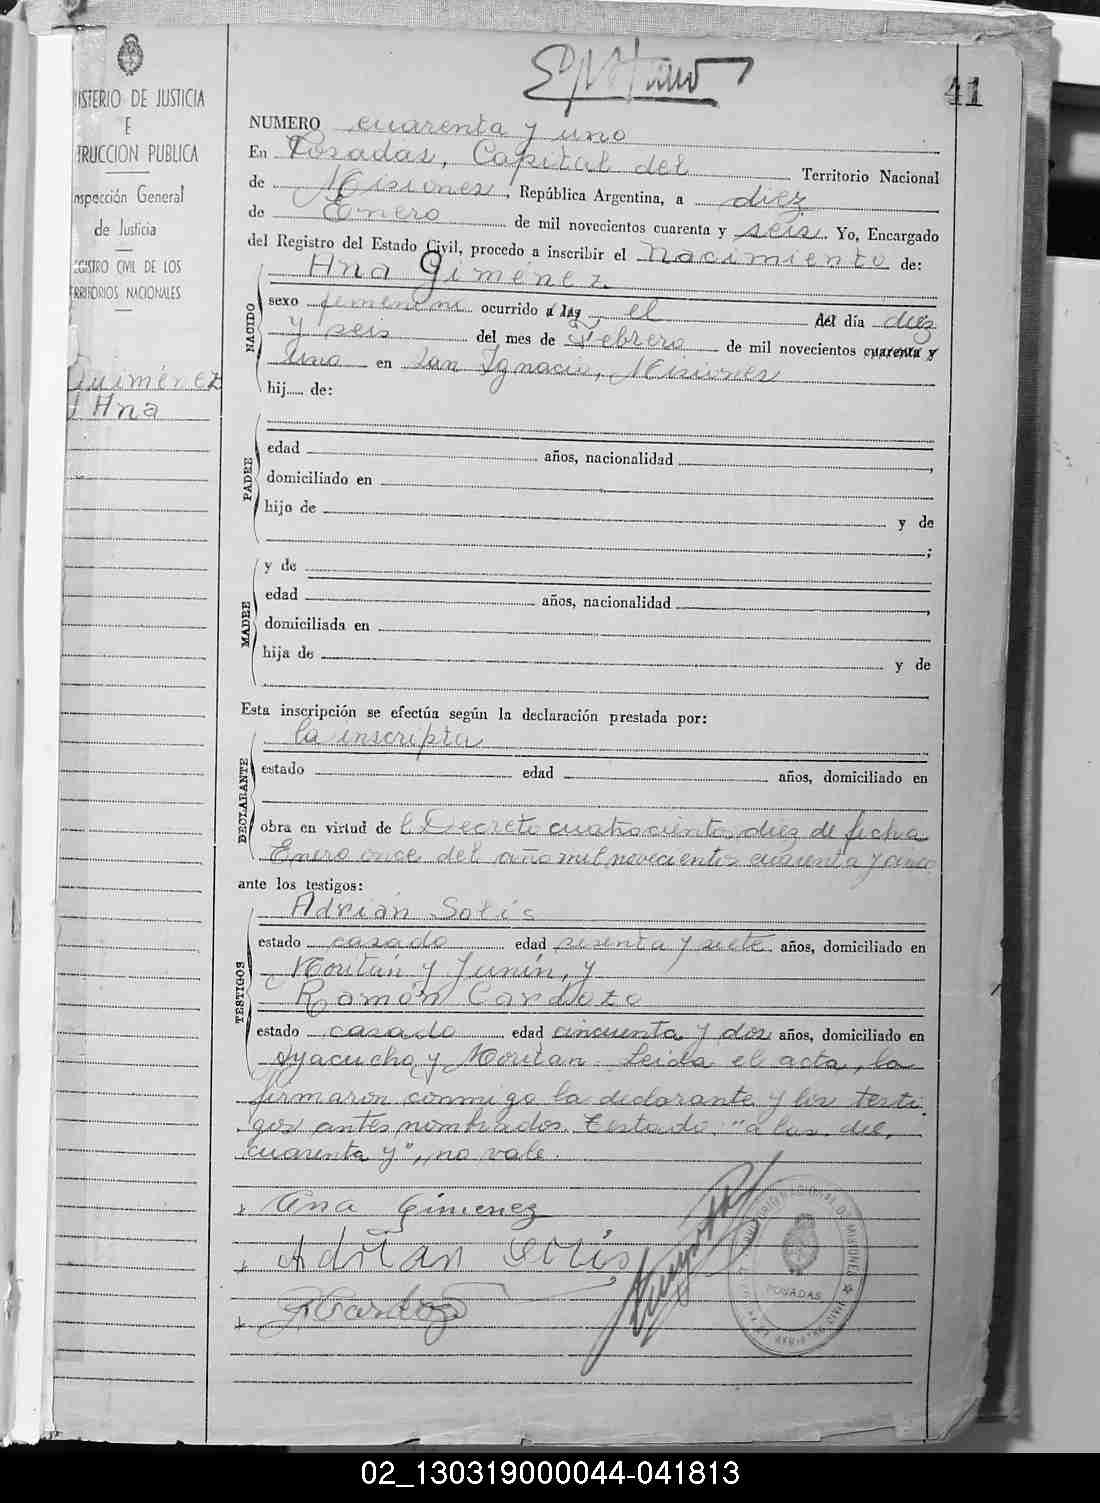 41
NISTERIO DE JUSTICIA
E
TRUCCION PUBLICA
nspección General
de Justicia
EGISTRO CIVIL DE LOS
ERRITORIOS NACIONALES
Guiménez
Ana
NUMERO cuarenta y uno
En Posadas, Capital del Territorio Nacional
de Misiones, República Argentina, a diez
de Enero de mil novecientos cuarenta y seis. Yo, Encargado
del Registro del Estado Civil, procedo a inscribir el nacimiento de:
NACIDO
Ana Giménez
sexo femenino ocurrido a las, el del día diez
y seis del mes de Febrero de mil novecientos cuarenta y
uno en San Ignacio, Misiones
hij..... de:
PADRE
edad años, nacionalidad ,
domiciliado en
hijo de y de
;
MADRE
y de
edad años, nacionalidad ,
domiciliada en
hija de y de
Esta inscripción se efectúa según la declaración prestada por:
DECLARANTE
la inscripta
estado edad años, domiciliado en
obra en virtud del Decreto cuatrocientos diez de fecha
Enero once del año mil novecientos cuarenta y cinco
ante los testigos:
TESTIGOS
Adrián Solís
estado casado edad sesenta y siete años, domiciliado en
Roritán y Junín, y
Ramón Cardozo
estado casado edad cincuenta y dos años, domiciliado en
Ayacucho y Roritan. Leida el acta, la
firmaron conmigo la declarante y los testi
gos antes nombrados. Testado: "a las, del,
cuarenta y", no vale.
Ana Gimenez
Adrian Solis
RCardozo
POSADAS
02_130319000044-041813